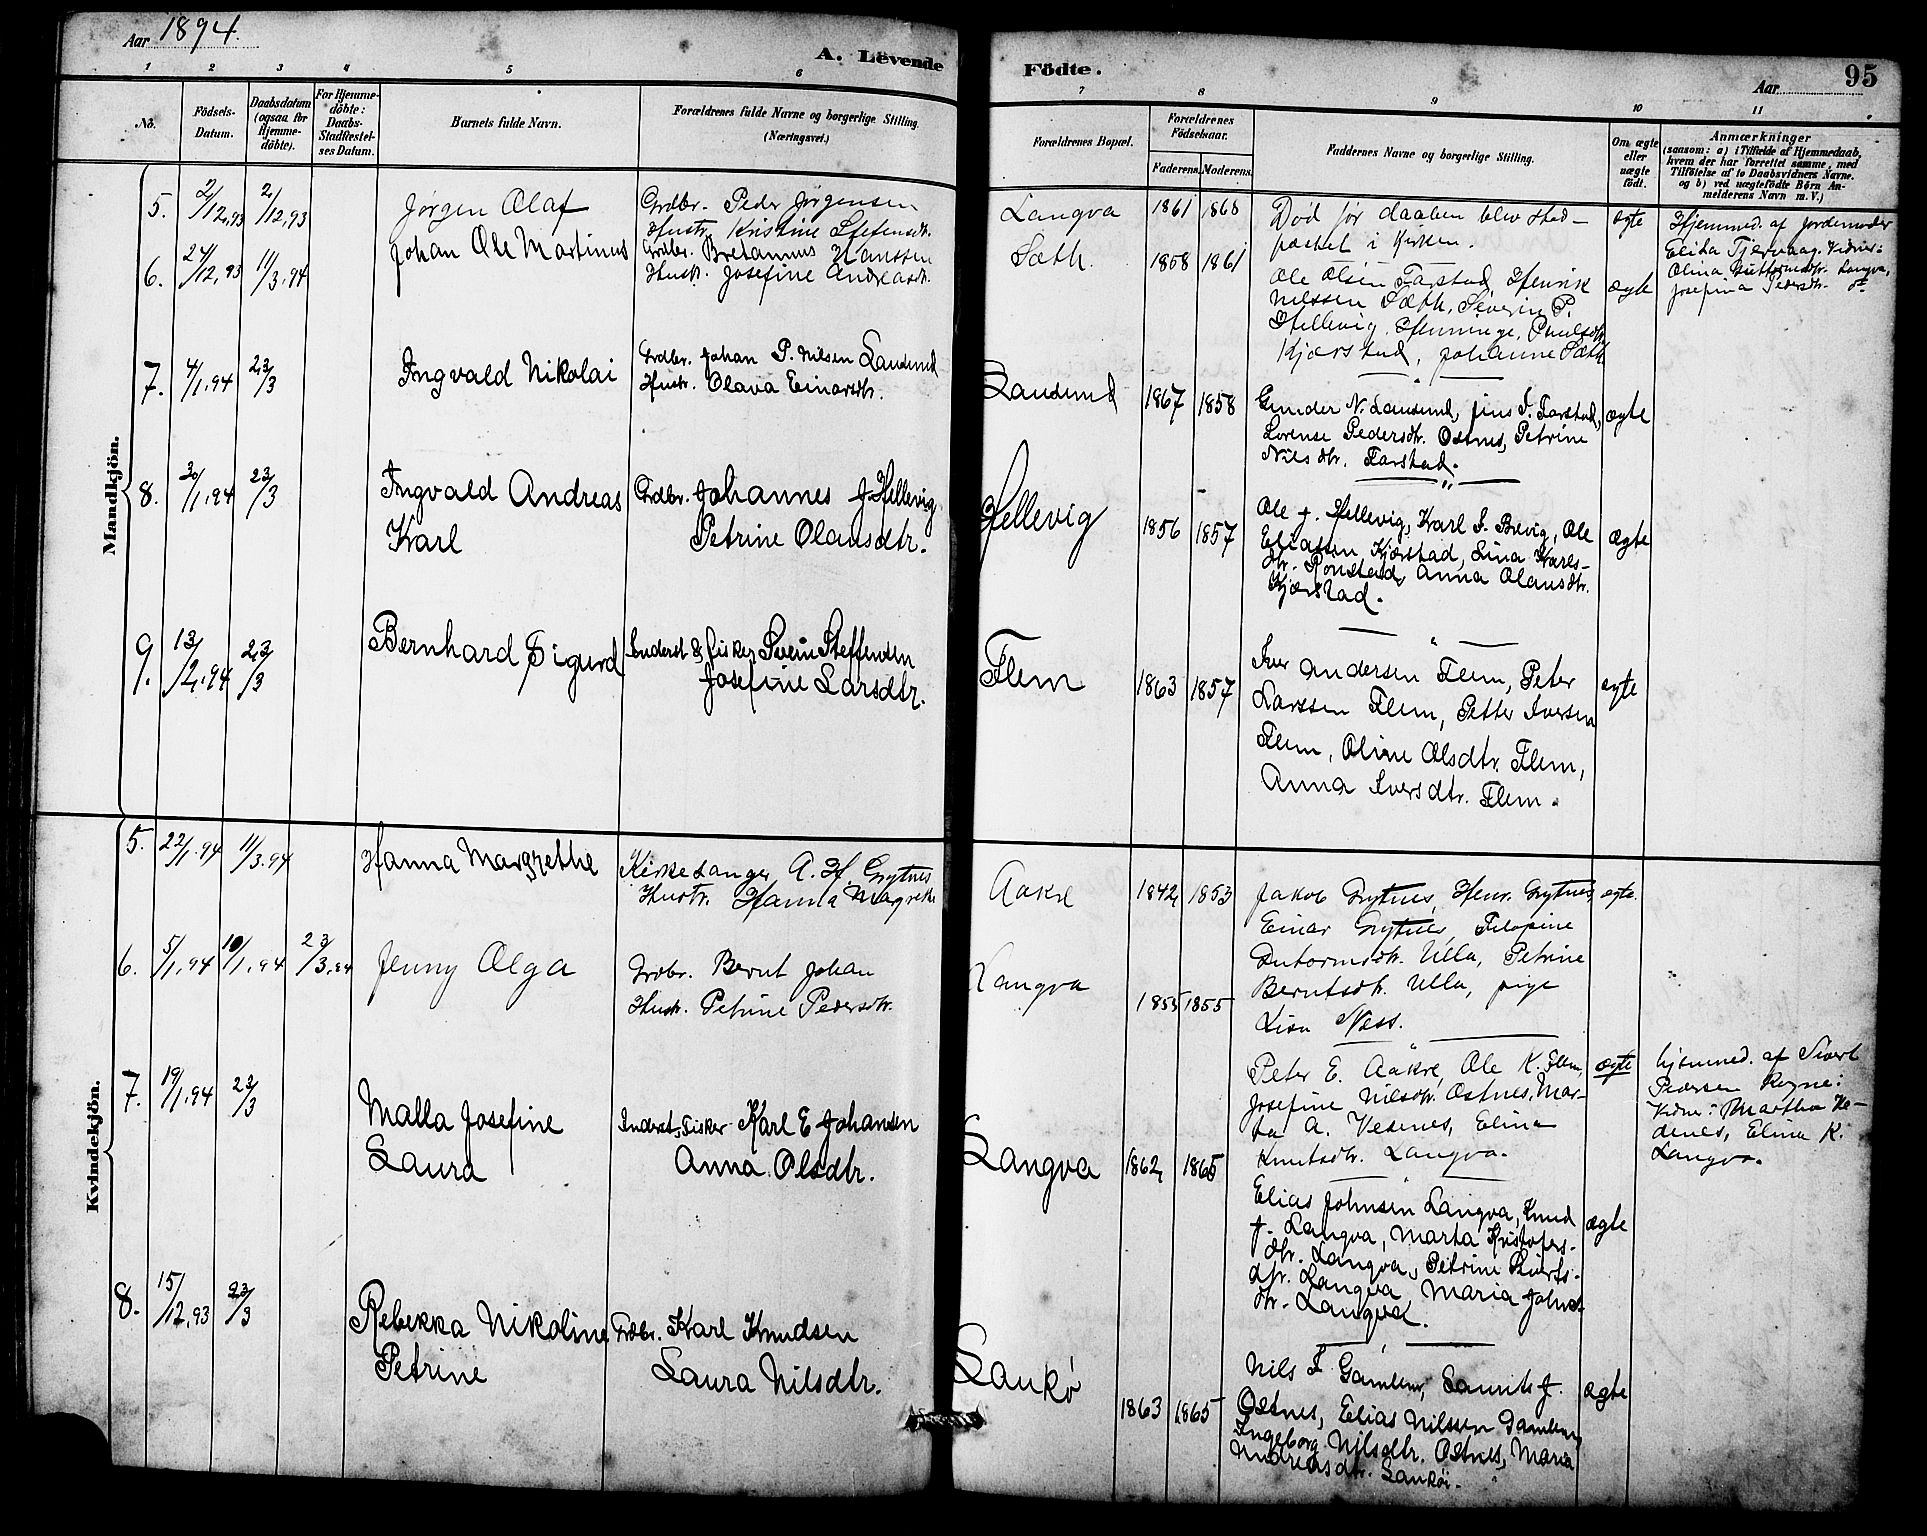 Aar 1894.
A. Levende
1 2 3 4 5 6
No. Födsels-Datum. Daabsdatum (ogsaa for Hjemme-döbte). For Hjemme-döbte: Daabs-Stadfæstel-ses Datum. Barnets fulde Navn. Forældrenes fulde Navne og borgerlige Stilling. (Næringsvei.)
Mandkjön.
5. 2/12,93 2/12,93 Jørgen Olaf Grdbr. Peder Jørgensen
Hustr. Kristine Steffensdtr.
6. 24/12,93 11/3.94 Johan Ole Martinus Grdbr. Bretanius Hanssen
Hustr. Josefine Andreasdtr.
7. 4/1,94 23/3 Ingvald Nikolai Grdbr. Johan P. Nilsen Lausund
Hustr. Olava Einarsdtr.
8. 30/1,94 23/3 Ingvald Andreas Grdbr. Johannes J. Hellevig
Karl Petrine Olausdtr.
9. 13/2,94 23/3 Bernhard Sigurd Inderst & Fisker Svein Steffensen
Josefine Larsdtr.
Kvindekjön.
5. 22/1.94 11/3.94 Hanna Margrethe Kirkesanger A. H. Grytnes
Hustr. Hanna Magrethe
6. 5/1,94 10/1,94 23/3,94 Jenny Olga Grdbr. Bernt Johan
Hustr. Petrine Pedersdtr.
7. 19/1,94 23/3 Malla Josefine Inderst, Fisker Karl E Johansen
Laura Anna Olsdtr.
8. 15/12,93 23/3 Rebekka Nikoline Grdbr. Karl Knudsen
Petrine Laura Nilsdtr.
Födte.
Aar 95
7 8 9 10 11
Forældrenes Bopæl. Forældrenes Födselsaar. Faderens. Moderens. Faddernes Navne og borgerlige Stilling. Om ægte eller uægte födt. Anmærkninger
(saasom: a) i Tilfælde af Hjemmedaab, hvem der har forrettet samme, med Tilföielse af to Daabsvidners Navne. og b) ved uægtefödte Börn Anmelderens Navn m. V.)
Langva 1861 1868 Død før daaben blev stad-
fæstet i Kirken. ægte
Hjemmed. af Jordemoder
Olina Langva,
Josefina Pedersdtr.
Sæth. 1858 1861 Ole Olsen Farstad, Henrik
Nilssen Sæth, Severine P.
Hellevig, Henninge Paulsdtr.
Kjærstad, Johanne Sæth ægte
Lausund 1867 1858 Gunder N. Lausund, Jens I. Farstad,
Lorense Pedersdtr. Ostnes, Petrine
Nilsdtr. Farstad. ægte
Hellevig 1856 1857 Ole J. Hellevig, Karl I. Brevig, Ole
Eliassen Kjærstad, Lina Karls-
dtr. Rønstad, Anna Olausdtr.
Kjærstad. ægte
Flem 1863 1857 Iver Andersen Flem, Peter
Larssen Flem, Petter Iversen
Flem, Oline Olsdtr. Flem,
Anna Iversdtr. Flem. ægte
Aakre 1842 1853 Jakob Grytnes, Henr. Grytnes,
Einar Grytnes, Filopine
Gutormsdtr. Ulla, Petrine
Berntsdtr. Ulla, pige
Lisa Næss. ægte.
Langva 1855 1855 Peter E. Aakre, Ole K. Flem
Josefine Nilsdtr. Ostnes, Mar-
ta A. Vesnes, Elina
Knutsdtr. Langva. ægte
hjemmed. af Sivert
Pedersen Røgne:
Vidne: Martha
Elina K.
Langva.
Langva 1862 1865 Elias Johnsen Langva, Knud
J. Langva, Marta Kristofers-
dtr. Langva, Petrine Siverts-
dtr. Langva, Maria Johns-
dtr. Langva. ægte
Laukø 1863 1865 Nils I Gamlem, Laurits J.
Ostnes, Elias Nilssen Gamlem,
Ingeborg Nilsdtr. Ostnes, Maria
Andreasdtr. Laukøi. ægte